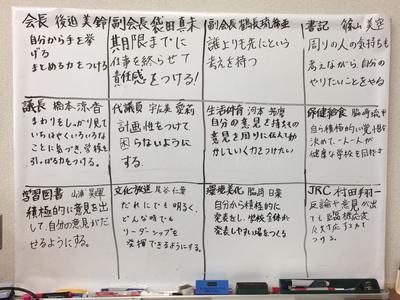 会長 後迫美鈴
自分から手を挙
げる
まとめる力をつける
副会長 袋田真未
期限までに
仕事を終らせて
責任感をつける!
副会長
誰よりも先にという
考えを持つ
書記 篠山美空
周りの人の気持ちも
考えながら、自分の
やりたいことをやる
議長 橋本涼香
まわりをしっかり見て
いちはやくいろいろな
ことに気づき、学校を
引っぱる力をつける。
代議員 宇佐美愛莉
計画性をつけて
困らないように
する。
生活体育 河本
自分の意見を持ち
意見を周りに伝え
かしていく力をつけたい
保健給食 脇﨑
自ら積極的に覚悟を
決めて、一人一人が
健康な学校を目指す
学習図書 山浦
積極的に意見を出
して、自分の意見がだ
せるようにする。
文化放送 尾谷仁
だれにでも明るく、
どんな時でも
リーダーシップを
発揮できるようにする。
環境美化 脇﨑日菜
自分から積極的に
発表をし、学校全体が
発表しやすい場をつくる
JRC 村田翔一
反論や意見が出
ても臨機応変
に対応する力を
つける。